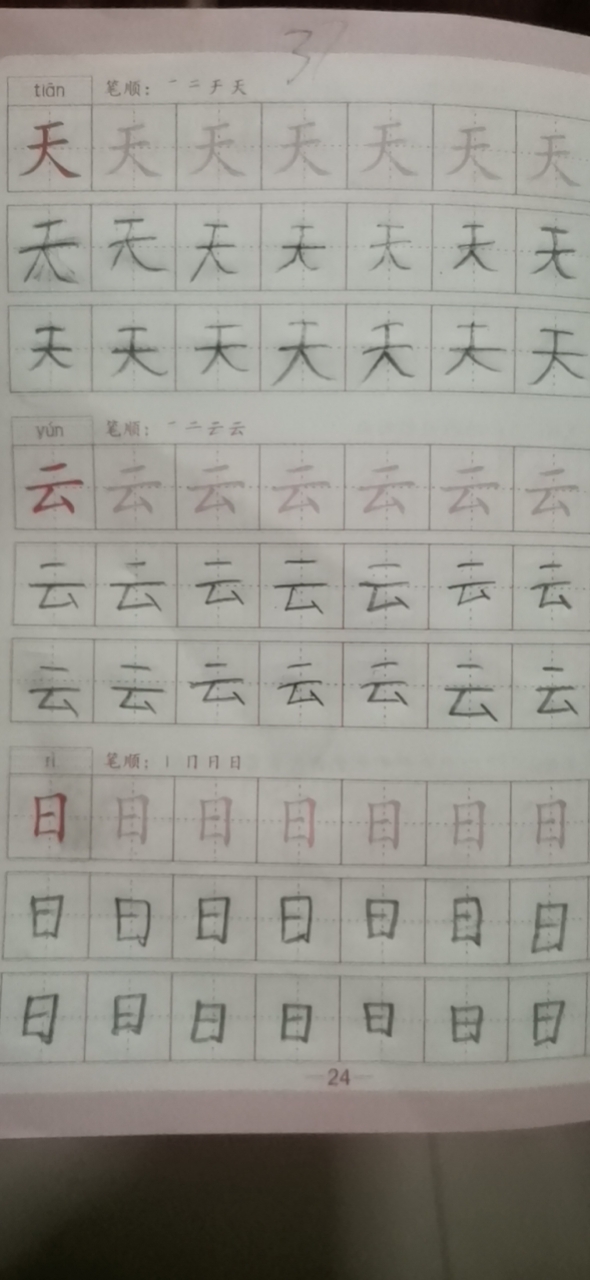 37
tiān 笔顺：一 二 于 天
天 天 天 天 天 天 天
天 天 天 天 天 天 天
天 天 天 天 天 天 天
yún 笔顺：一 二 云 云
云 云 云 云 云 云 云
云 云 云 云 云 云 云
云 云 云 云 云 云 云
rì 笔顺：丨 冂 月 日
日 日 日 日 日 日 日
日 日 日 日 日 日 日
日 日 日 日 日 日 日
24